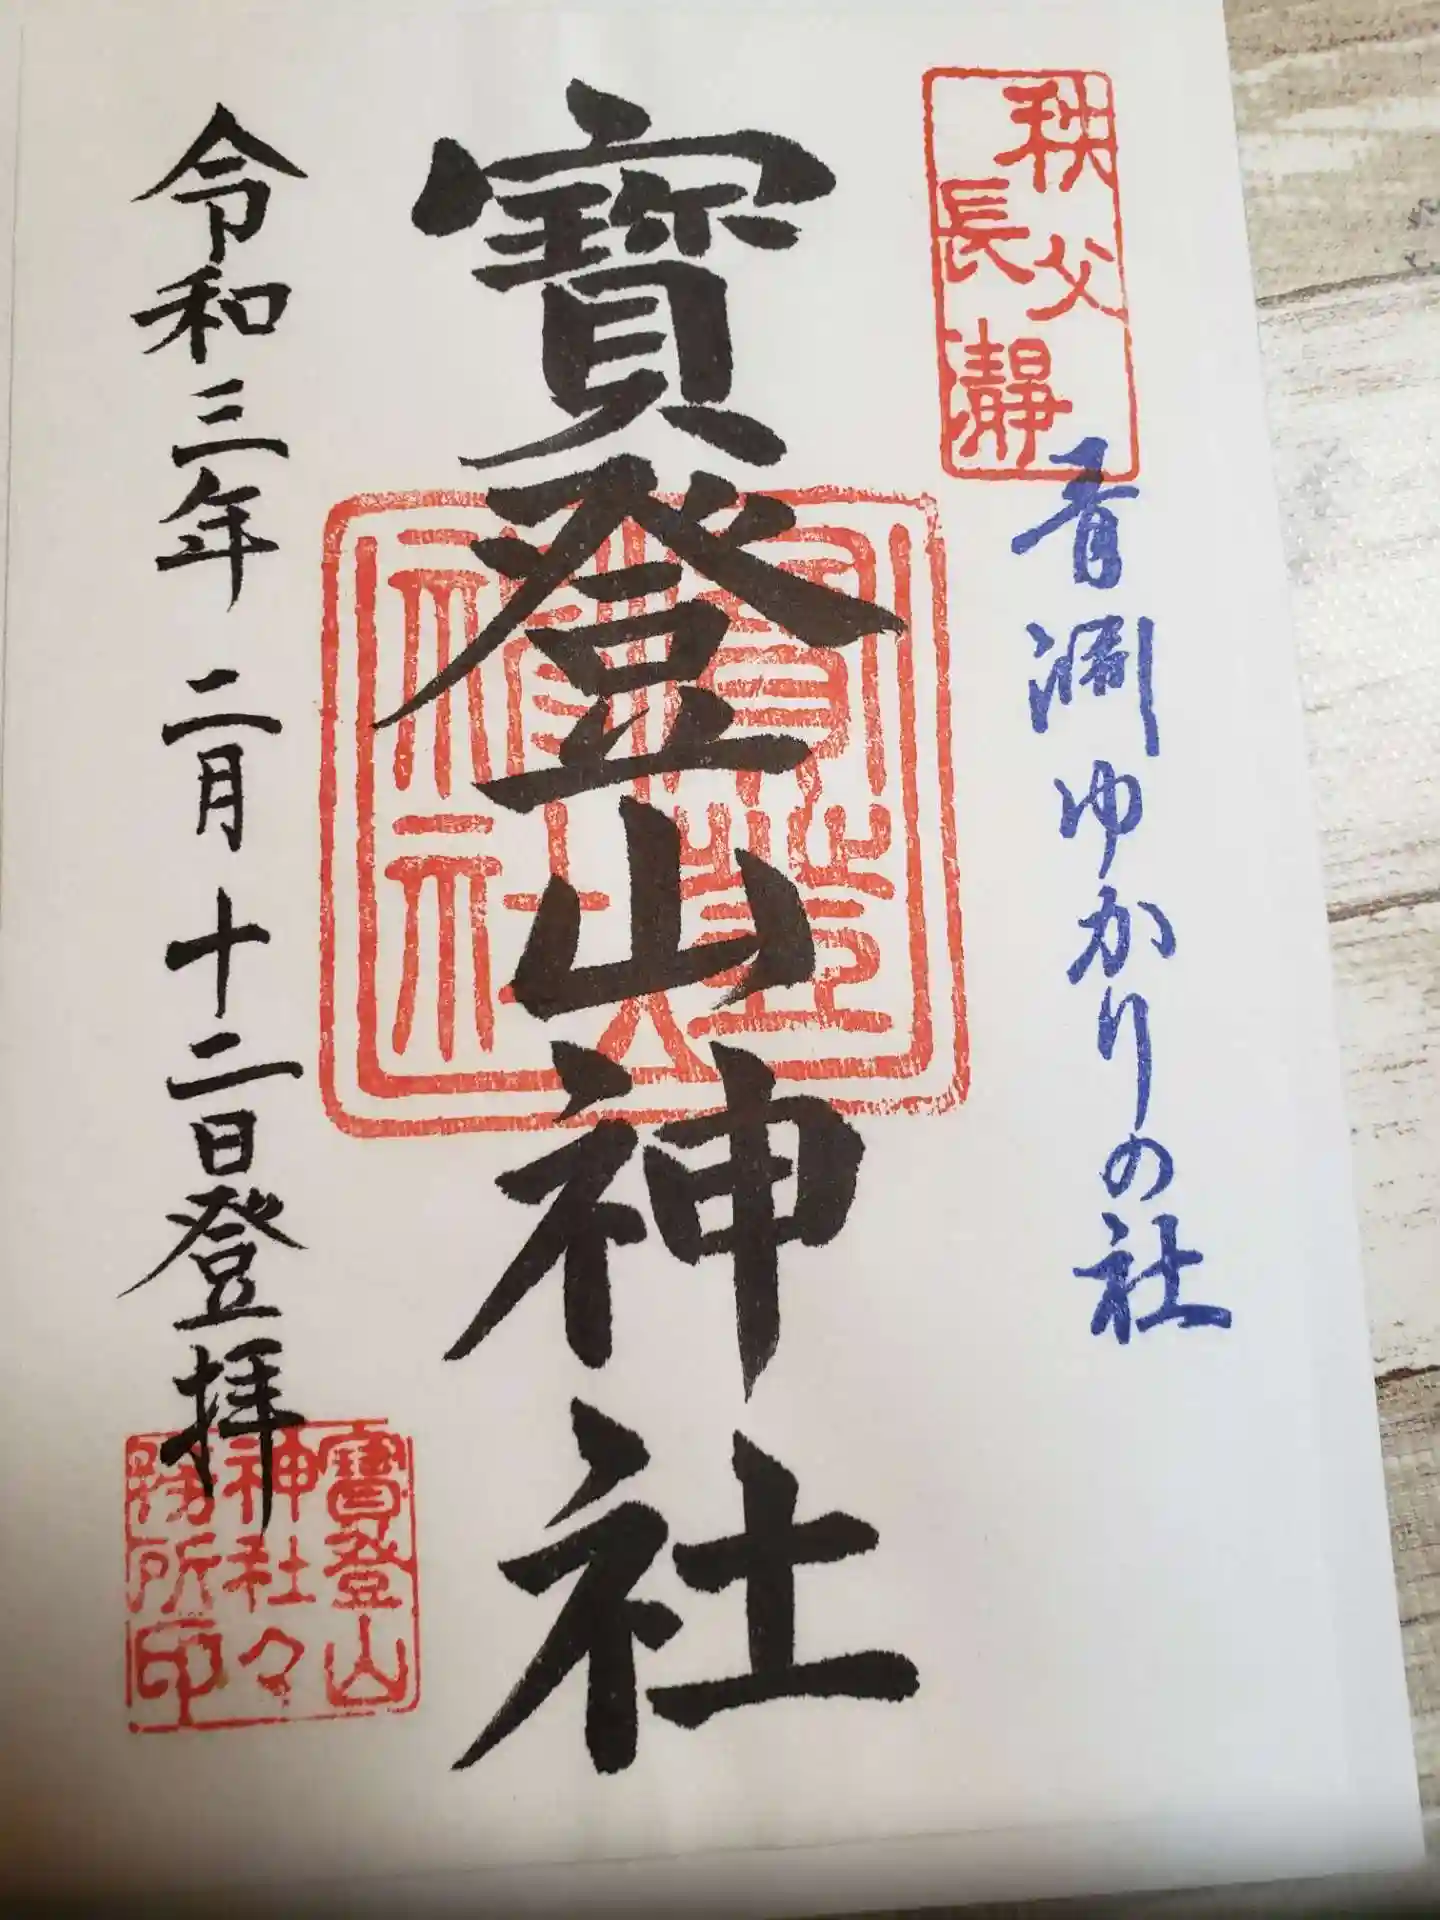 秩父
長瀞
青淵ゆかりの社
寳登山神社
寳登山神社
令和三年二月十二日登拝
寳登山
神社々
務所印